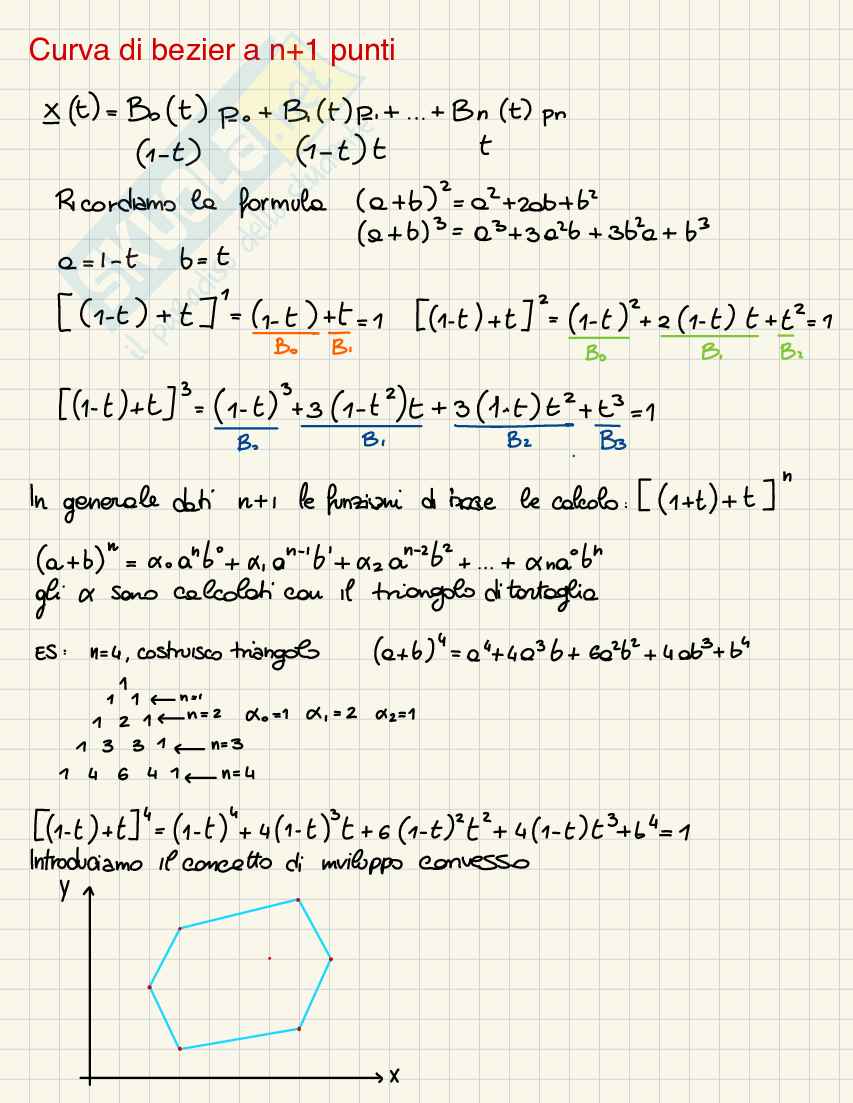 Curva di bezier a n+1 punti
x(t) = B₀(t) p₀ + B₁(t) p₁ + ... + Bn (t) pn
(1-t) (1-t) t t
Ricordiamo la formula (a+b)² = a² + 2ab + b²
(a+b)³ = a³ + 3a²b + 3b²a + b³
a = 1-t b = t
[(1-t) + t]¹ = (1-t) + t = 1 [(1-t) + t]² = (1-t)² + 2(1-t) t + t² = 1
B₀ B₁ B₀ B₁ B₂
[(1-t)+t]³ = (1-t)³ + 3(1-t²)t + 3(1-t)t² + t³ = 1
B₀ B₁ B₂ B₃
In generale dati n+1 le funzioni di base le calcolo: [(1+t)+t]ⁿ
(a+b)ⁿ = α₀aⁿb⁰ + α₁aⁿ⁻¹b¹ + α₂aⁿ⁻²b² + ... + αna⁰bⁿ
gli α sono calcolati con il triangolo di tartaglia
ES: n=4, costruisco triangolo (a+b)⁴ = a⁴+4a³b + 6a²b² + 4ab³+b⁴
1
1 1 ← n=1
1 2 1 ← n=2 α₀=1 α₁=2 α₂=1
1 3 3 1 ← n=3
1 4 6 4 1 ← n=4
[(1-t)+t]⁴ = (1-t)⁴ + 4(1-t)³t + 6(1-t)²t² + 4(1-t)t³ + b⁴ = 1
Introduciamo il concetto di inviluppo convesso
y
x
SKUOLA.net
il paradiso dello studente